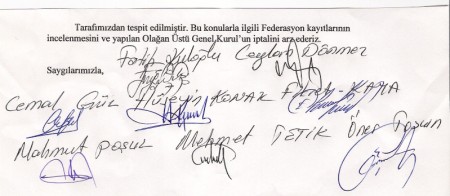 Tarafımızdan tespit edilmiştir. Bu konularla ilgili Federasyon kayıtlarının
incelenmesini ve yapılan Olağan Üstü Genel Kurul'un iptalini arz ederiz.
Saygılarımızla,
Fatih Ceylan Dönmez
Cemal GÜL Hüseyin KONAK KAYA
Mahmut Mehmet TETİK Öner